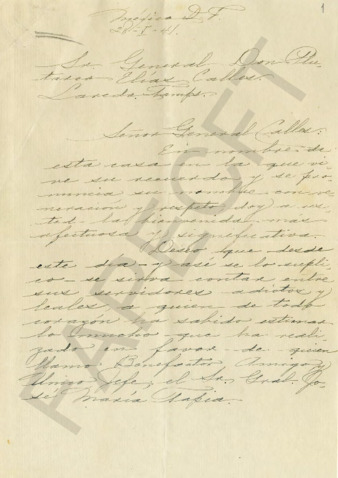 1
México D. F.
Sr. General Don Plu-
tarco Elías Calles.
Laredo, Tamps.
Señor General Calles:
En nombre de
esta casa en la que vi-
ve su recuerdo y se pro-
nuncia su nombre con ve-
neración y respeto doy a us-
ted la bienvenida más
afectuosa y significativa.
Deseo que desde
este día y así se lo supli-
co- se sirva contar entre
sus servidores adictos y
leales a quien de todo
corazón ha sabido estimar
lo mucho que ha reali-
zado en favor de quien
llamo: Benefactor, Amigo y
Unico Jefe, el Sr. Gral. Jo-
sé María Tapia.
FAPECFT